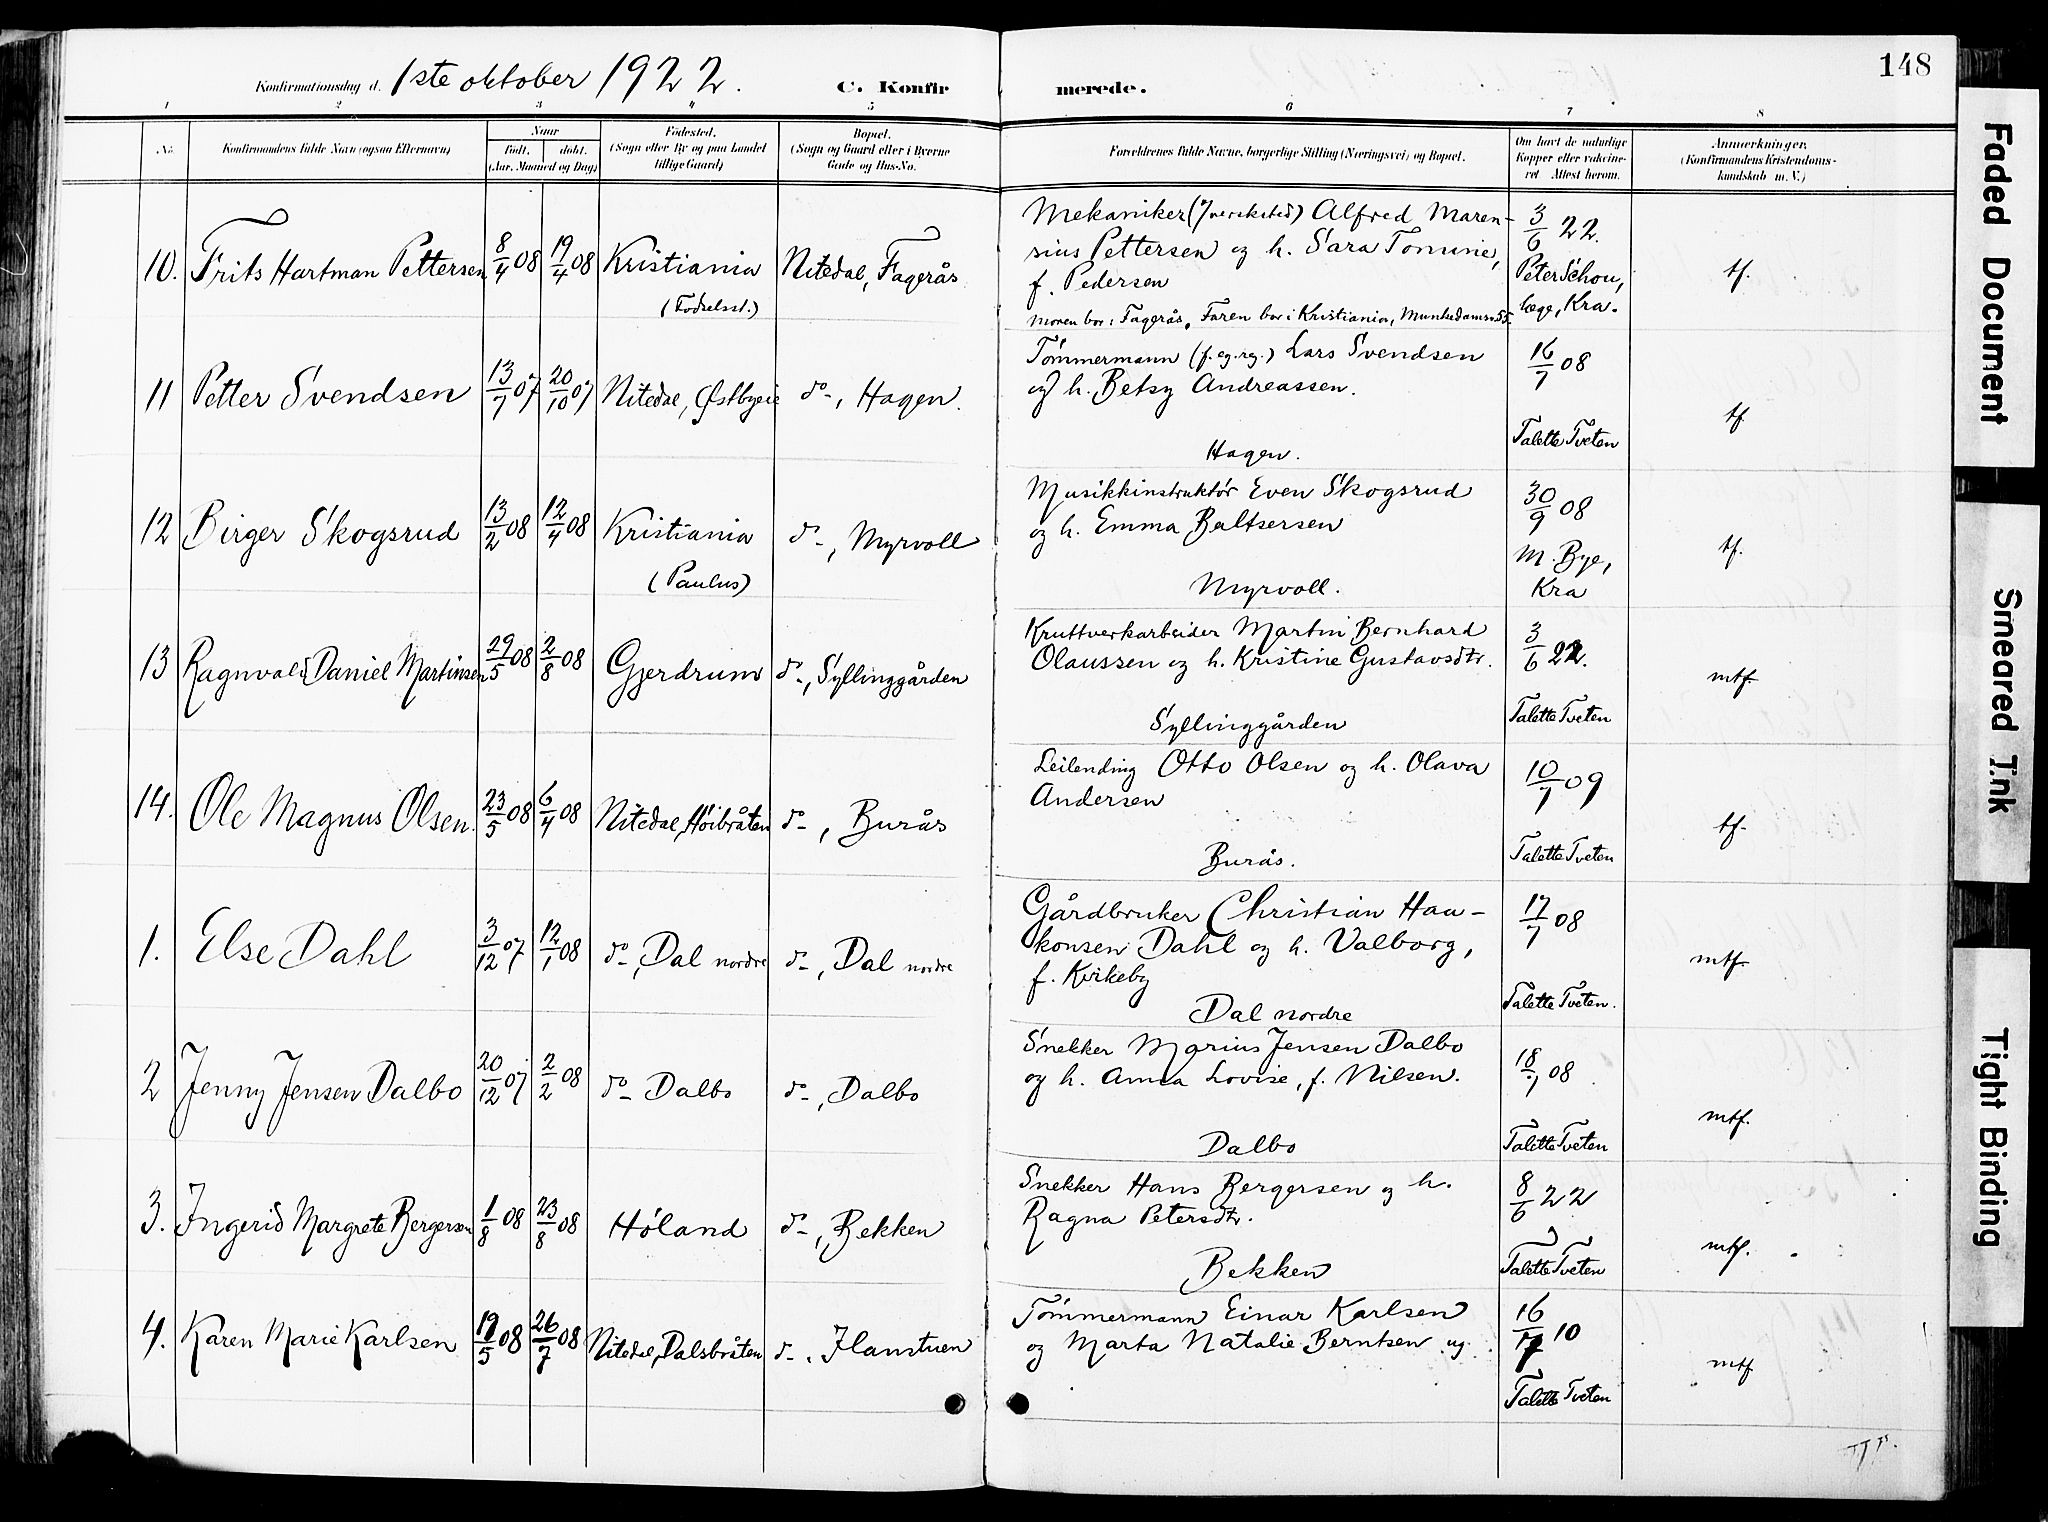 Konfirmationsdag d. 1ste oktober 1922. C. Konfirmerede. 148
1 2 3 4 5 6 7 8
No. Konfirmandens fulde Navn (ogsaa Efternavn) Naar Født. døbt. (Aar, Maaned og Dag) Fødested. (Sogn eller By og paa Landet tillige Gaard) Bopæl. (Sogn og Gaard eller i Byerne Gade og Hus-No. Forældrenes fulde Navne, borgerlige Stilling (Næringsvei) og Bopæl. Om havt de naturlige Kopper eller vakcineret Attest herom. Anmærkninger. (Konfirmandens Kristendomskundskab m. V.)
10. Frits Hartman Pettersen 8/4 08 19/4 08 Kristiania (Fødselsst.) Nitedal, Fagerås
Mekaniker (Jverksted) Alfred Maren-
sius Pettersen og h. Sara Tomine,
f. Pedersen
Moren bor i Fagerås. Faren bor i Kristiania, Munkedamsv. 55.
3/6 22. Peter Schou, læge, Kra. tf.
11 Petter Svendsen 13/7 07 20/10 07 Nitedal, Østbyeie do, Hagen.
Tømmermann (f. eg. rg.) Lars Svendsen
og h. Betsy Andreassen.
Hagen.
16/7 08 Talette Tveten tf.
12 Birger Skogsrud 13/2 08 12/4 08 Kristiania (Paulus) do, Myrvoll
Musikkinstruktør Even Skogsrud
og h. Emma Baltsersen
Myrvoll.
30/9 08 M. Bye, Kra tf.
13 Ragnvald Daniel Martinsen 29/5 08 2/8 08 Gjerdrum do, Syllinggården
Kruttverkarbeider Martin Bernhard
Olaussen og h. Kristine Gustavsdtr.
Syllinggården
3/6 22. Talette Tveten mtf.
14. Ole Magnus Olsen. 23/5 08 6/4 08 Nitedal, Høibråten do, Burås
Leilending Otto Olsen og h. Olava
Andersen
Burås.
10/7 09 Talette Tveten tf.
1. Else Dahl 3/12 07 12/1 08 do, Dal nordre do, Dal nordre
Gårdbruker Christian Haa-
konsen Dahl og h. Valborg,
f. Kirkeby
Dal nordre
17/7 08 Talette Tveten. mtf.
2 Jenny Jensen Dalbo 20/12 07 2/2 08 do Dalbo do, Dalbo
Snekker Marius Jensen Dalbo
og h. Anna Lovise, f. Nilsen.
Dalbo
18/7 08 Talette Tveten mtf.
3. Ingerid Margrete Bergersen 1/8 08 23/8 08 Høland do, Bekken
Snekker Hans Bergersen og h.
Ragna Petersdtr.
Bekken
8/6 22 Talette Tveten mtf.
4. Karen Marie Karlsen 19/5 08 26/7 08 Nitedal, Dalsbråten do, Flanstuen
Tømmermann Einar Karlsen
og Marta Natalie Berntsen ug.
16/7 10 Talette Tveten mtf
Faded Document
Smeared Ink
Tight Binding